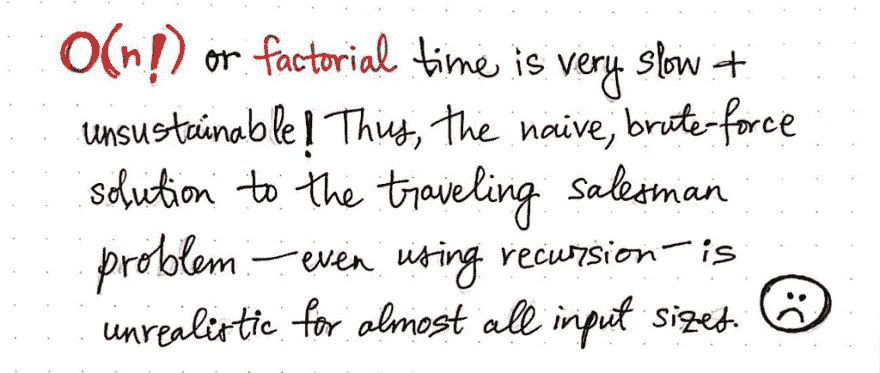 O(n!) or factorial time is very slow +
unsustainable! Thus, the naive, brute-force
solution to the traveling salesman
problem — even using recursion — is
unrealistic for almost all input sizes.